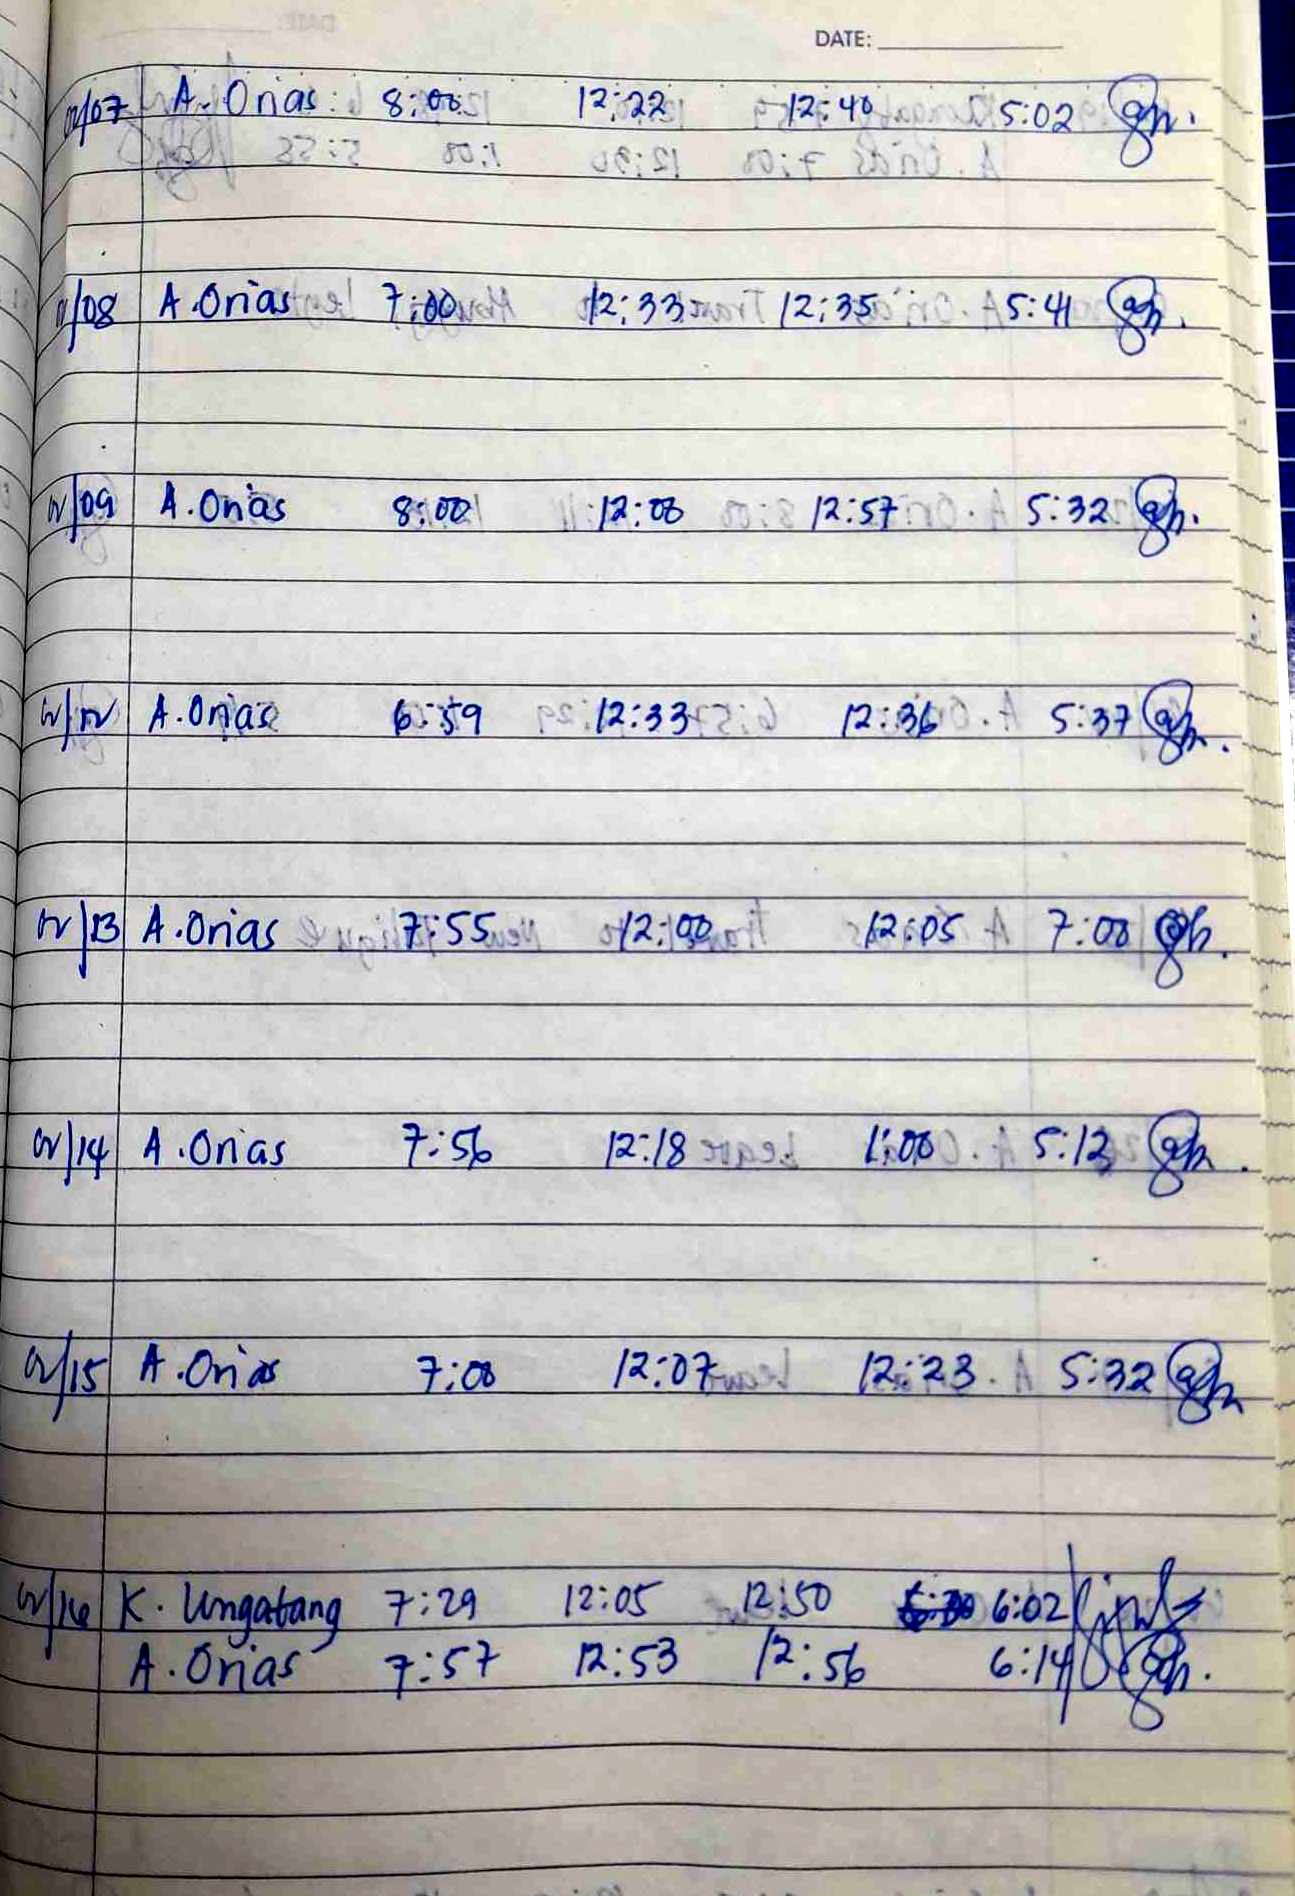 DATE:
02/07 A. Orias 8:00 12:22 12:40 5:02
/08 A. Orias 7:00 12:33 12:35 5:41
02/09 A. Orias 8:00 12:00 12:57 5:32
02/12 A. Orias 6:59 12:33 12:36 5:37
02/13 A. Orias 7:55 12:00 12:05 7:00
02/14 A. Orias 7:56 12:18 1:00 5:12
02/15 A. Orias 7:00 12:07 12:23 5:32
02/16 K. Ungatang 7:29 12:05 12:50 6:02
A. Orias 7:57 12:53 12:56 6:14